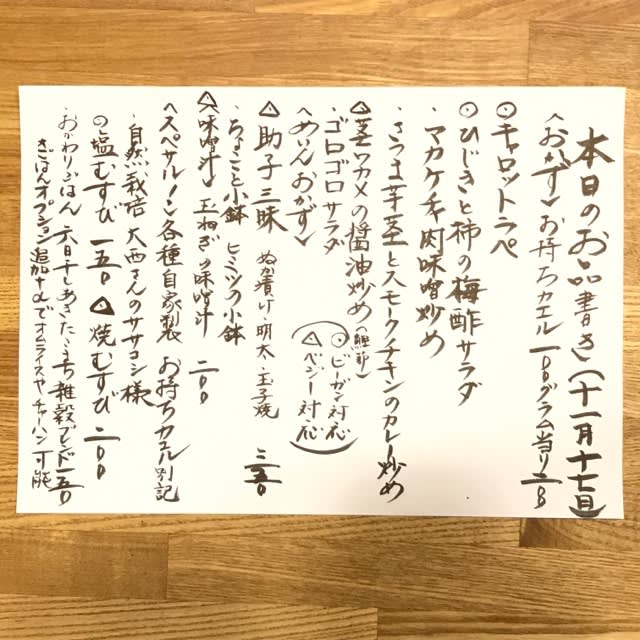 本日のお品書き(十一月十七日)
<おかず>お持ちカエル 一〇〇グラム当り二〇〇
⦿キャロットラペ
⦿ひじきと柿の梅酢サラダ
・マカケチャ肉味噌炒め
・さつま芋茎とスモークチキンのカレー炒め
△茎ワカメの醤油炒め(鰹節)
・ゴロゴロサラダ
⦿ビーガン対応
△ベジー対応
<めいんおかず>
△助子三昧 ぬか漬け明太・玉子焼 三五〇
・ちょこっと小鉢 ヒミツの小鉢
<味噌汁>玉ねぎの味噌汁 二〇〇
<スペサル!>各種自家製 お持ちカエル別記
・自然栽培 大西さんのササニシキ様
⦿塩むすび 一五〇 △焼むすび 二〇〇
・おかわりごはん 天日干しあきたこまち雑穀ブレンド一五〇
ごはんオプション追加+αでオムライスやチャーハン可能